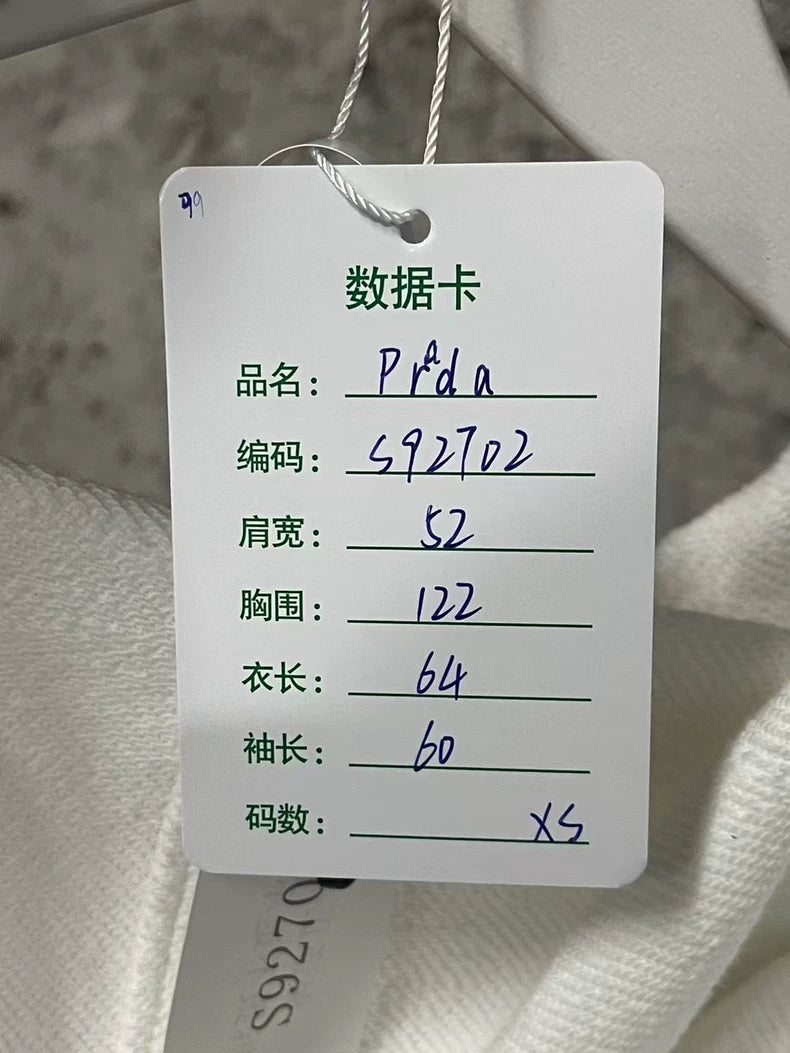 99
数据卡
品名： Prada
编码： S92702
肩宽： 52
胸围： 122
衣长： 64
袖长： 60
码数： XS
S9270